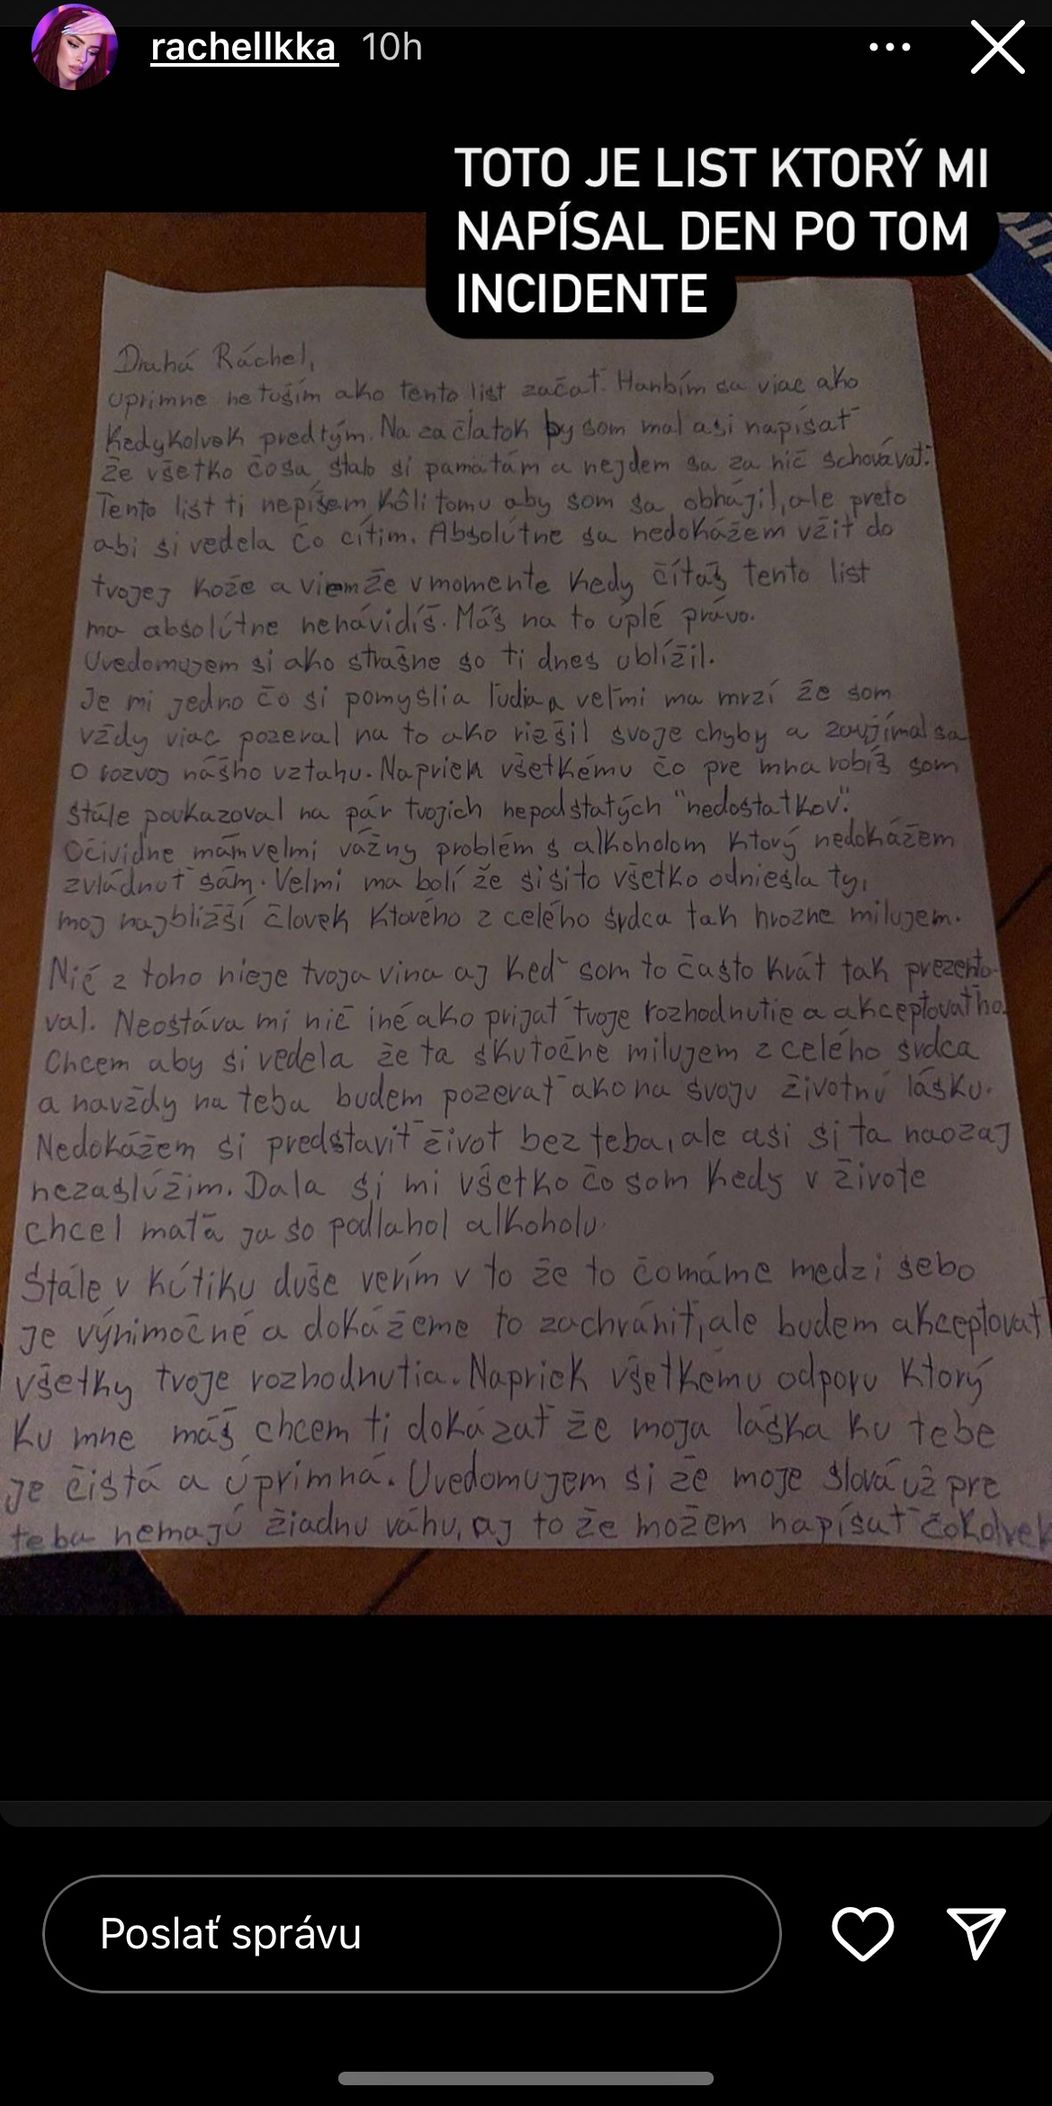 rachellkka 10h
TOTO JE LIST KTORÝ MI
NAPÍSAL DEN PO TOM
INCIDENTE
Drahá Ráchel,
úprimne netuším ako tento list začať. Hanbím sa viac ako
kedykolvek predtým. Na začiatok by som mal asi napísať
že všetko čo sa stalo si pamätám a nejdem sa za nič schovávať.
Tento list ti nepíšem kôli tomu aby som sa obhájil, ale preto
abi si vedela čo cítim. Absolútne sa nedokážem vžiť do
tvojej kože a viem že v momente kedy čítaš tento list
ma absolútne nenávidíš. Máš na to úplé právo.
Uvedomujem si ako strašne so ti dnes ublížil.
Je mi jedno čo si pomyslia ľudia a veľmi ma mrzí že som
vždy viac pozeral na to ako riešil svoje chyby a zaujímal sa
o rozvoj nášho vztahu. Napriek všetkému čo pre mna robíš som
stále poukazoval na pár tvojich nepodstatých "nedostatkov".
Očividne mám velmi vážny problém s alkoholom ktorý nedokážem
zvládnuť sám. Velmi ma bolí že si si to všetko odniesla ty,
moj najbližší človek ktorého z celého srdca tak hrozne milujem.
Nič z toho nieje tvoja vina aj keď som to často krát tak prezento-
val. Neostáva mi nič iné ako prijať tvoje rozhodnutie a akceptovať ho.
Chcem aby si vedela že ta skutočne milujem z celého srdca
a navždy na teba budem pozerať ako na svoju životnú lásku.
Nedokážem si predstaviť život bez teba, ale asi si ta naozaj
nezaslúžim. Dala si mi všetko čo som kedy v živote
chcel mať a ja so podlahol alkoholu.
Stále v kútiku duše verím v to že to čo máme medzi sebo
je výnimočné a dokážeme to zachrániť, ale budem akceptovať
všetky tvoje rozhodnutia. Napriek všetkému odporu ktorý
ku mne máš chcem ti dokázať že moja láska ku tebe
je čistá a úprimná. Uvedomujem si že moje slová už pre
teba nemajú žiadnu váhu, aj to že možem napísať čokolvek
Poslať správu